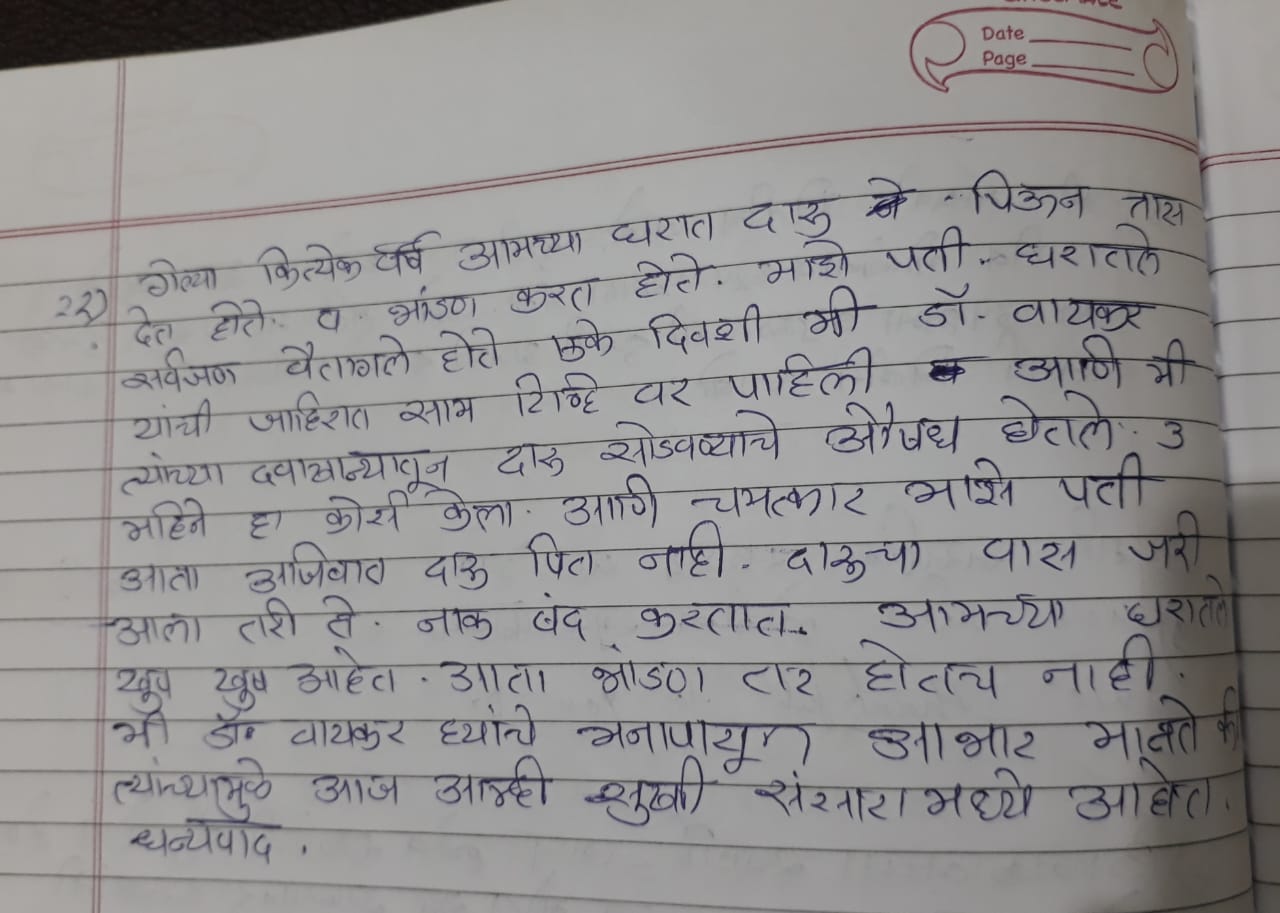 Date
Page
२२) गेल्या कित्येक वर्षे आमच्या घरात दारू पिऊन त्रास
देत होते. व भांडण करत होते. माझे पती. घरातले
सर्वजण वैतागले होते एके दिवशी मी डॉ. वायकर
यांची जाहिरात साम टिव्हि वर पाहिली आणि मी
त्यांच्या दवाखान्यातून दारू सोडवण्याचे औषध घेतले. ३
महिने हा कोर्स केला. आणि चमत्कार माझे पती
आता अजिबात दारू पित नाही. दारूचा वास जरी
आला तरी ते. नाक बंद करतात. आमच्या घरातले
खुप खुष आहेत. आता भांडण तर होतच नाही.
मी डॉ वायकर ह्यांचे मनापासून आभार मानते की
त्यांच्यामुळे आज आम्ही सुखी संसारामध्ये आहोत.
धन्यवाद.